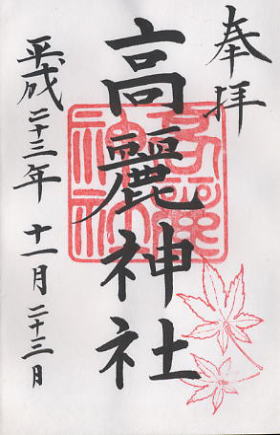 奉拝
高麗神社
高麗神社
平成二十三年十一月二十三日